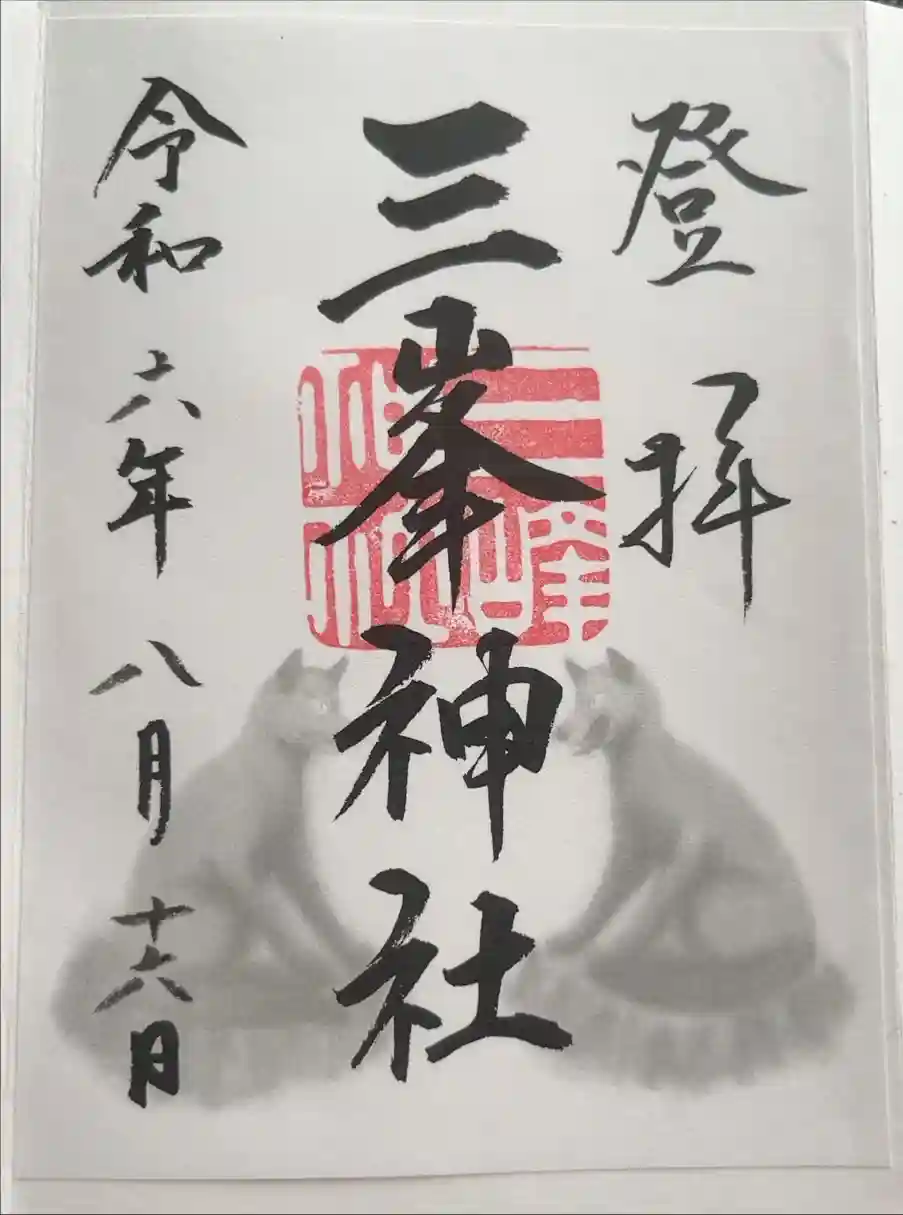 登拝
三峯神社
三峯神社
令和六年八月十六日